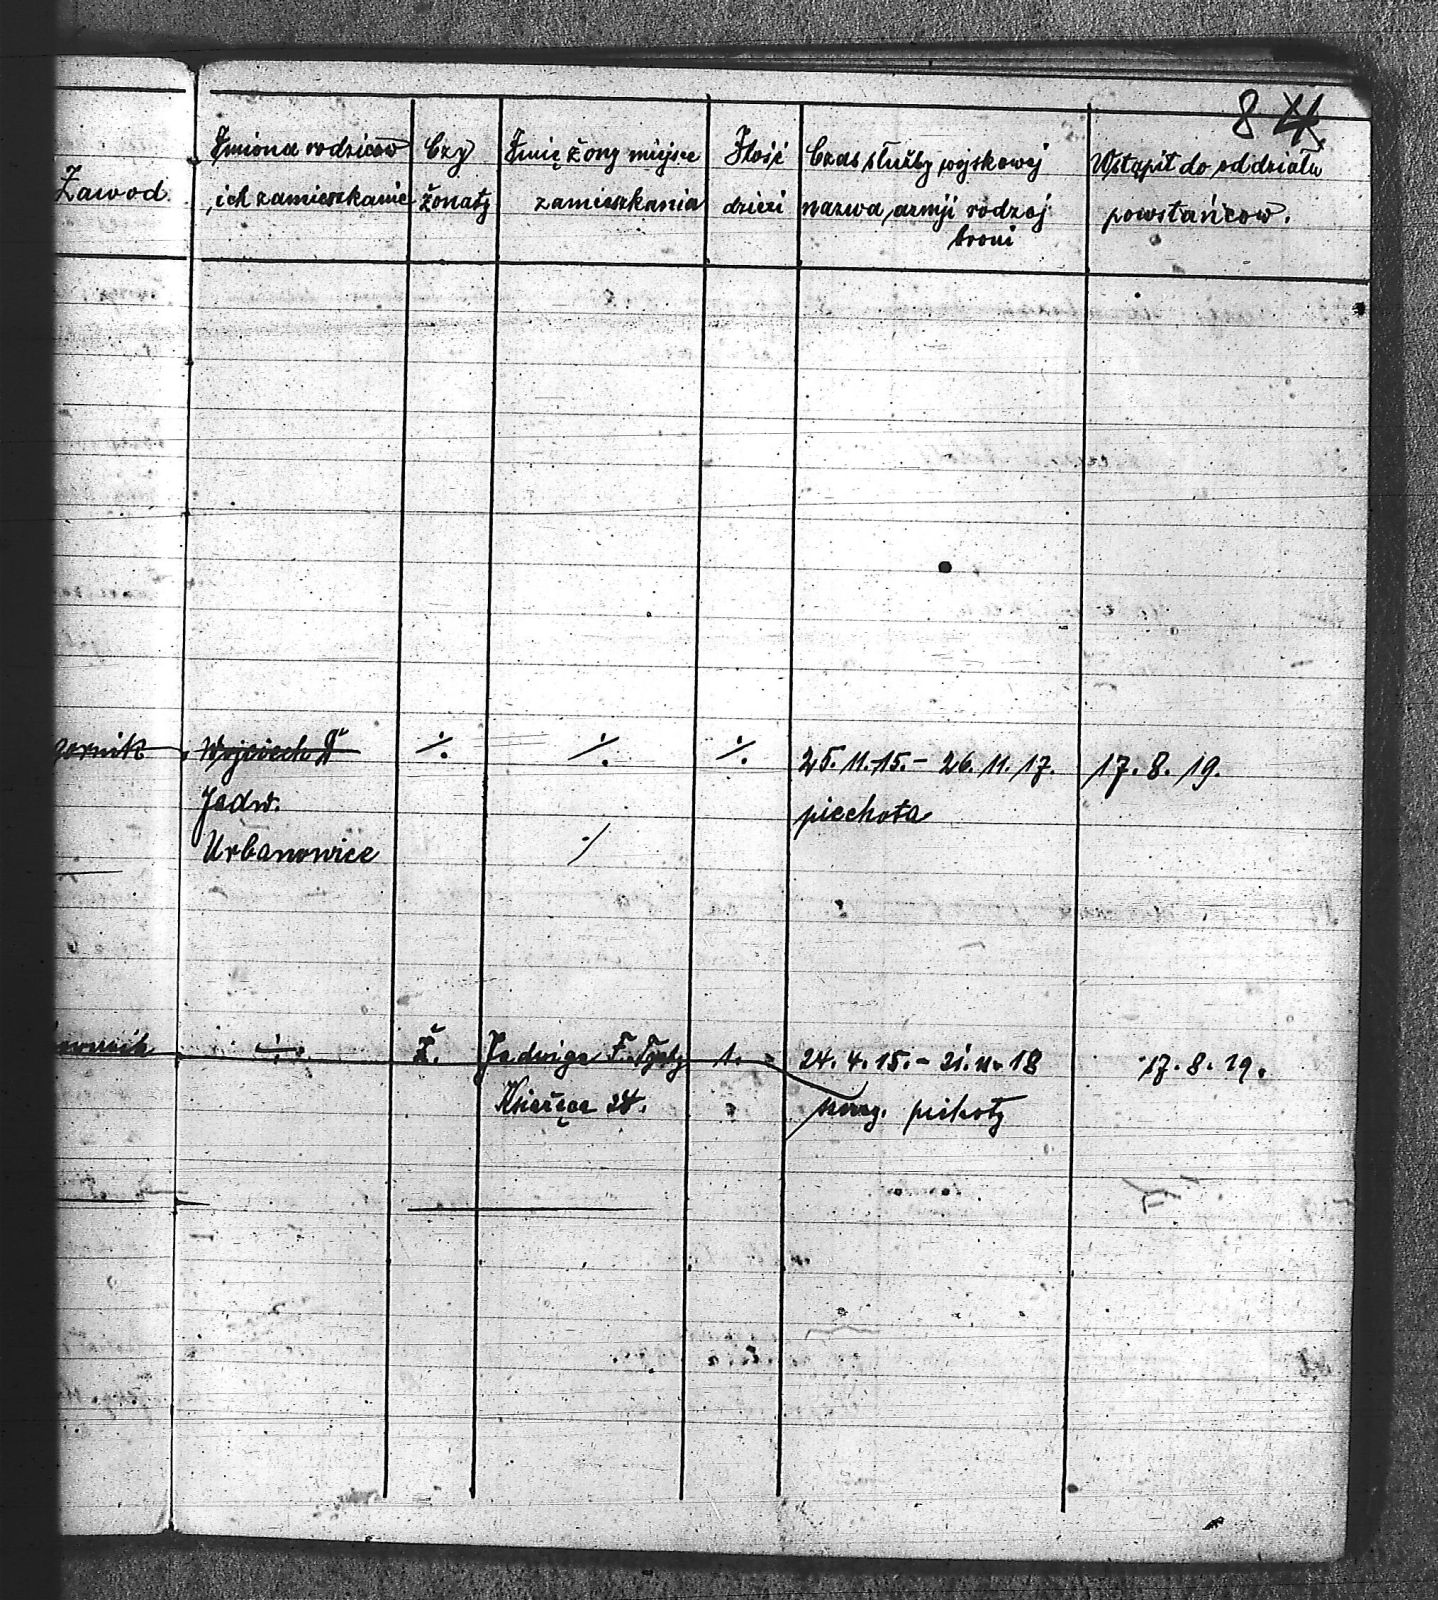 8
Zawod.
Imiona rodziców
ich zamieszkanie
Czy
żonaty
Imię żony miejsce
zamieszkania
Ilość
dzieci
Czas służby wojskowej
nazwa armji rodzaj
broni
Wstąpił do oddziału
powstańcow.
gornik
Wojciech
Jadw.
Urbanowice
./.
./.
./.
./
25. 11. 15. – 26. 11. 17.
piechota
17. 8. 19.
Ż.
Jadwiga
1.
24. 4. 15. – 21. 11. 18
17. 8. 19.